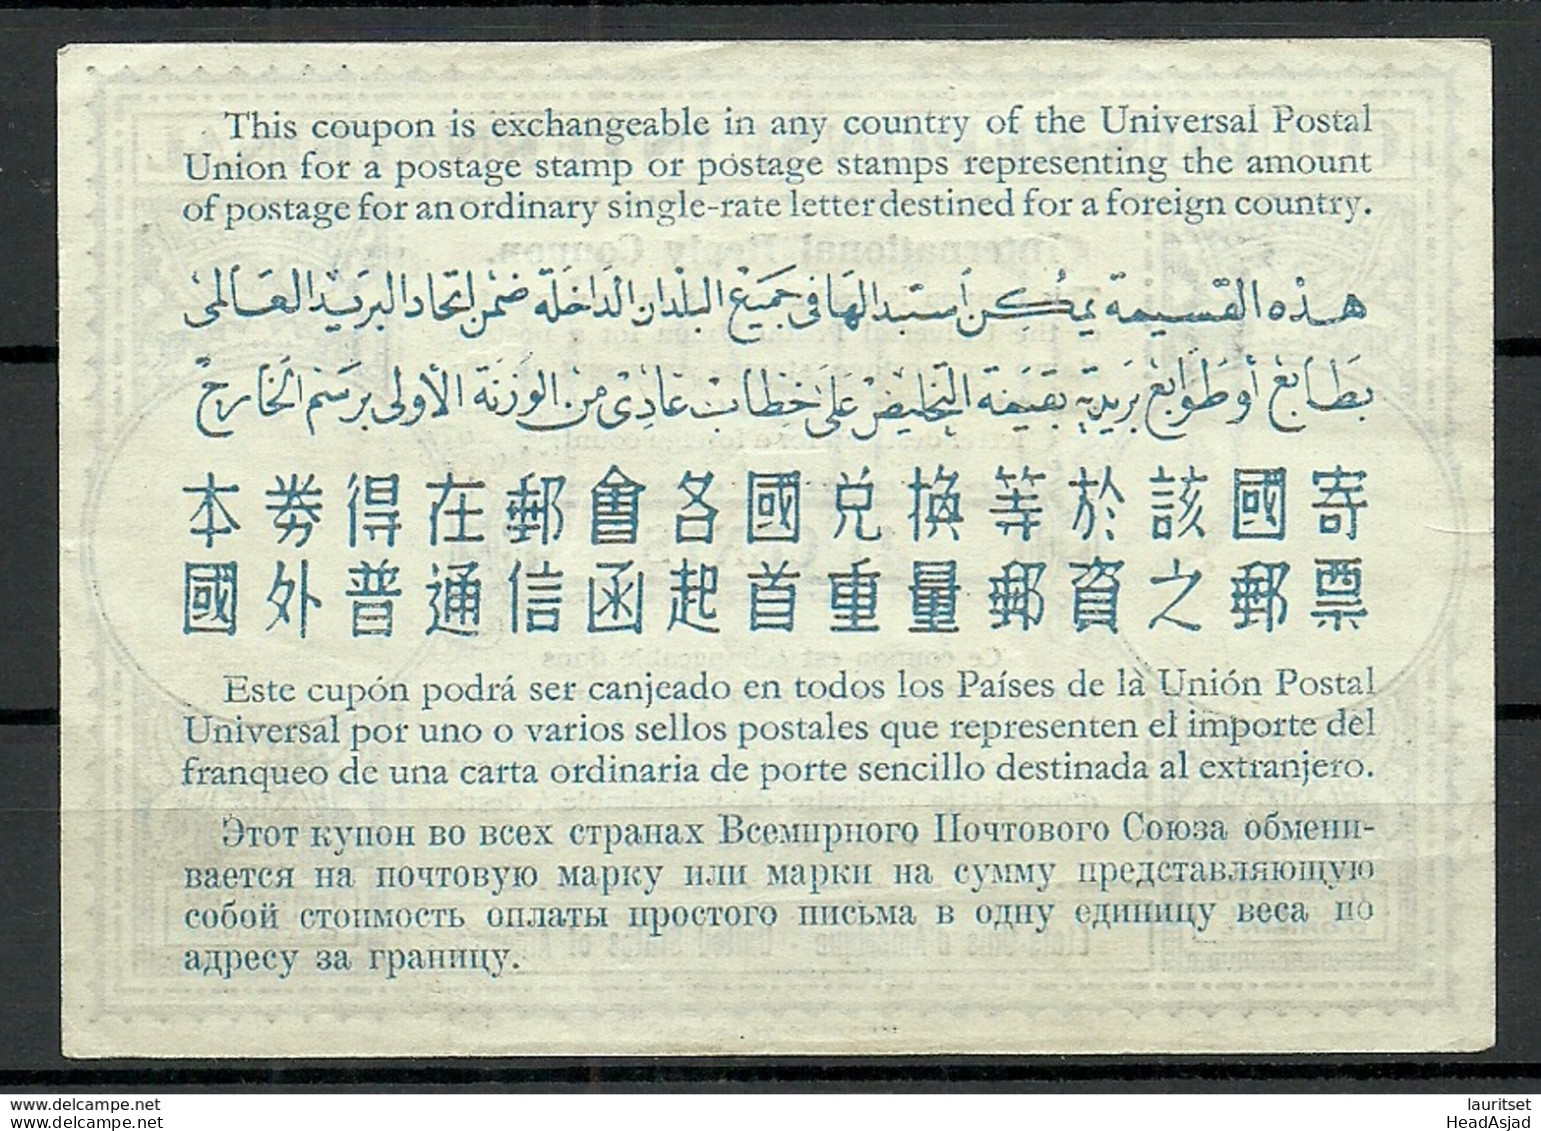 This coupon is exchangeable in any country of the Universal Postal
Union for a postage stamp or postage stamps representing the amount
of postage for an ordinary single-rate letter destined for a foreign country.
هذه القسيمة يمكن استبدالها في جميع البلدان الداخلة ضمن اتحاد البريد العالمى
بطابع أو طوابع بريدية بقيمة التخليص على خطاب عادى من الوزنة الأولى برسم الخارج
本券得在郵會各國兌換等於該國寄
國外普通信函起首重量郵資之郵票
Este cupón podrá ser canjeado en todos los Países de la Unión Postal
Universal por uno o varios sellos postales que representen el importe del
franqueo de una carta ordinaria de porte sencillo destinada al extranjero.
Этот купон во всех странах Всемирного Почтового Союза обмени-
вается на почтовую марку или марки на сумму представляющую
собой стоимость оплаты простого письма в одну единицу веса по
адресу за границу.
lauritset
lauritset
HeadAsjad
HeadAsjad